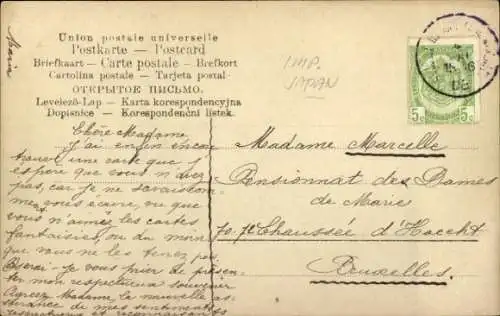 Union postale universelle
Postkarte — Postcard
Briefkaart — Carte postale — Brefkort
Cartolina postale — Tarjeta postal
ОТКРЫТОЕ ПИСЬМО.
Levelező-Lap — Karta korespondencyjna
Dopisnice — Korespondenční lístek.
IMP.
JAPAN
5c 5c
Maria
Chère Madame
J'ai enfin encore
trouvé une carte que j'
espère que vous n'avez
pas, car je ne
vous écrire, vu que
vous n'aimez les cartes
fantaisies, ou du moins
que vous ne les tenez pas.
-je vous prier de présen-
ter mon respectueux souvenir
Agréez Madame, la nouvelle as-
surance de mes sentiments
Madame Marcelle
Pensionnat des Dames
de Marie
70.72 Chaussée d'Haecht
Bruxelles.